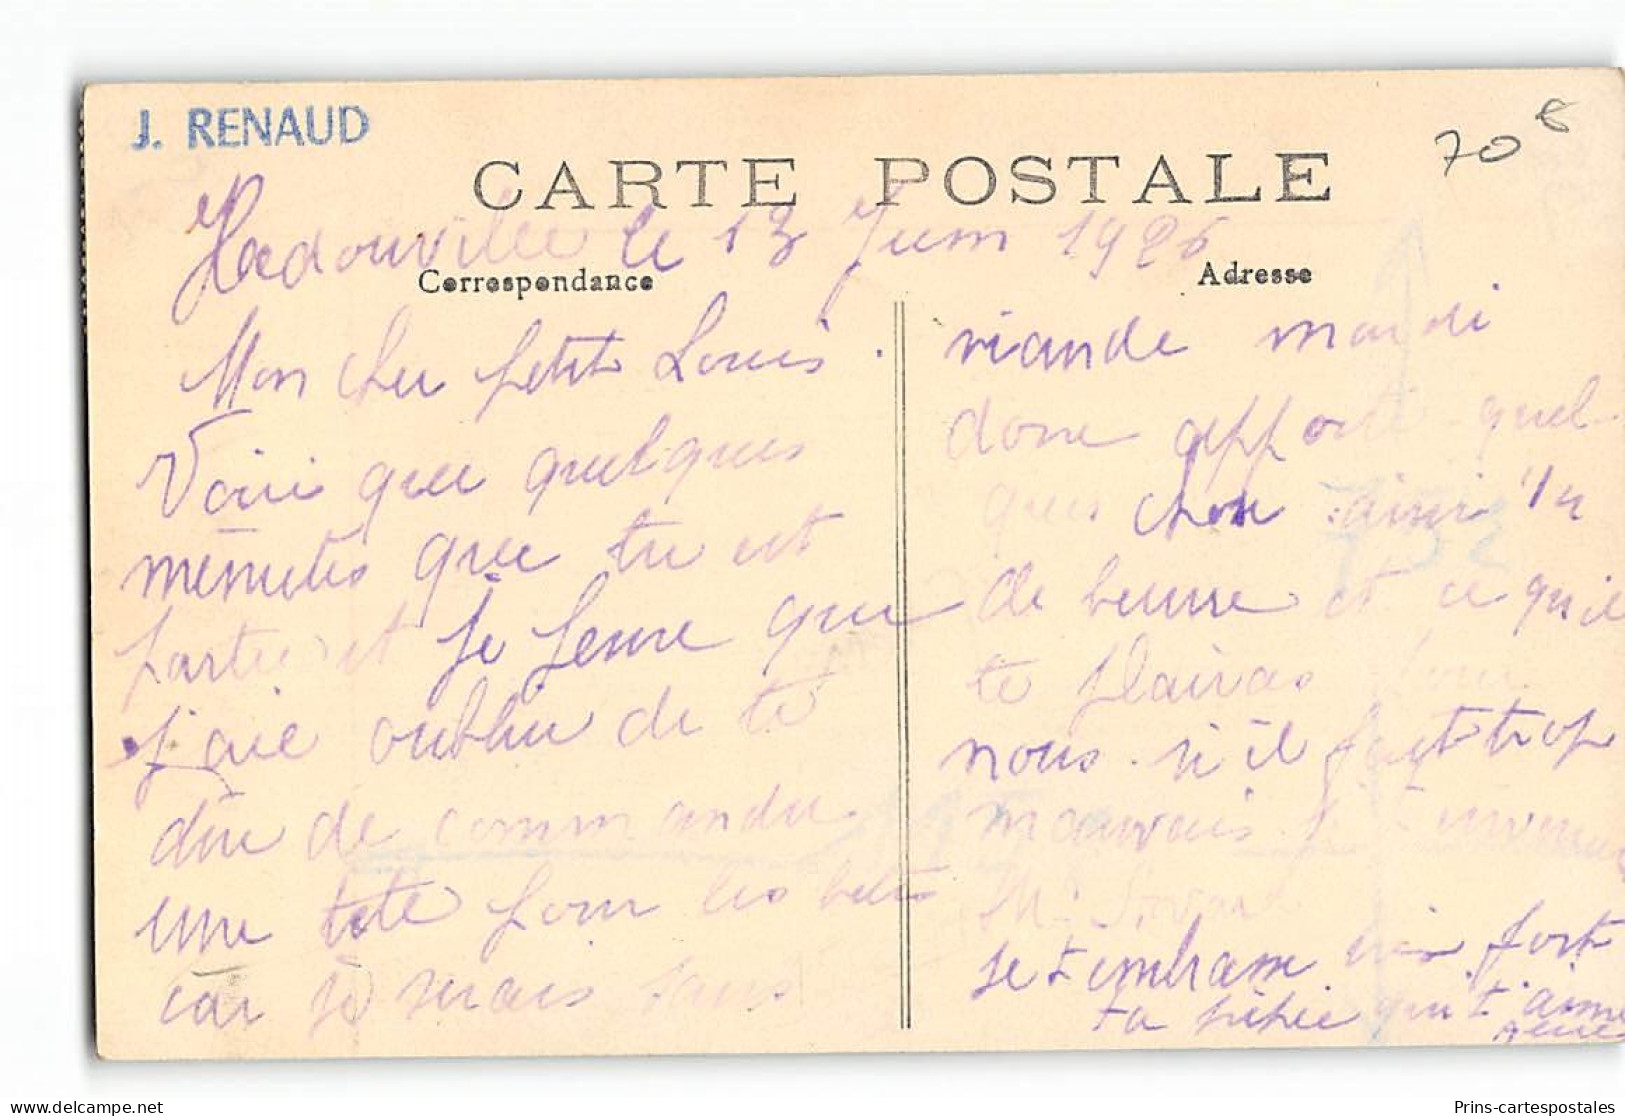 J. RENAUD
70 €
CARTE POSTALE
Hadouville le 13 Juin 1926
Correspondance
Adresse
Mon cher petit Louis.
Voici que quelques
menutes que tu est
partie et je pense que
j'aie oublier de te
dire de commander
une tete pour les betes
car je serais sans
viande mardi
donc apporte quel-
ques chose ainsi 1/4
de beurre et ce qu'il
te plairas pour
nous. si il fait trop
mauvais
Mr
je t'embrasse bien fort
ta qui t'aime
Prins-cartespostales
www.delcampe.net